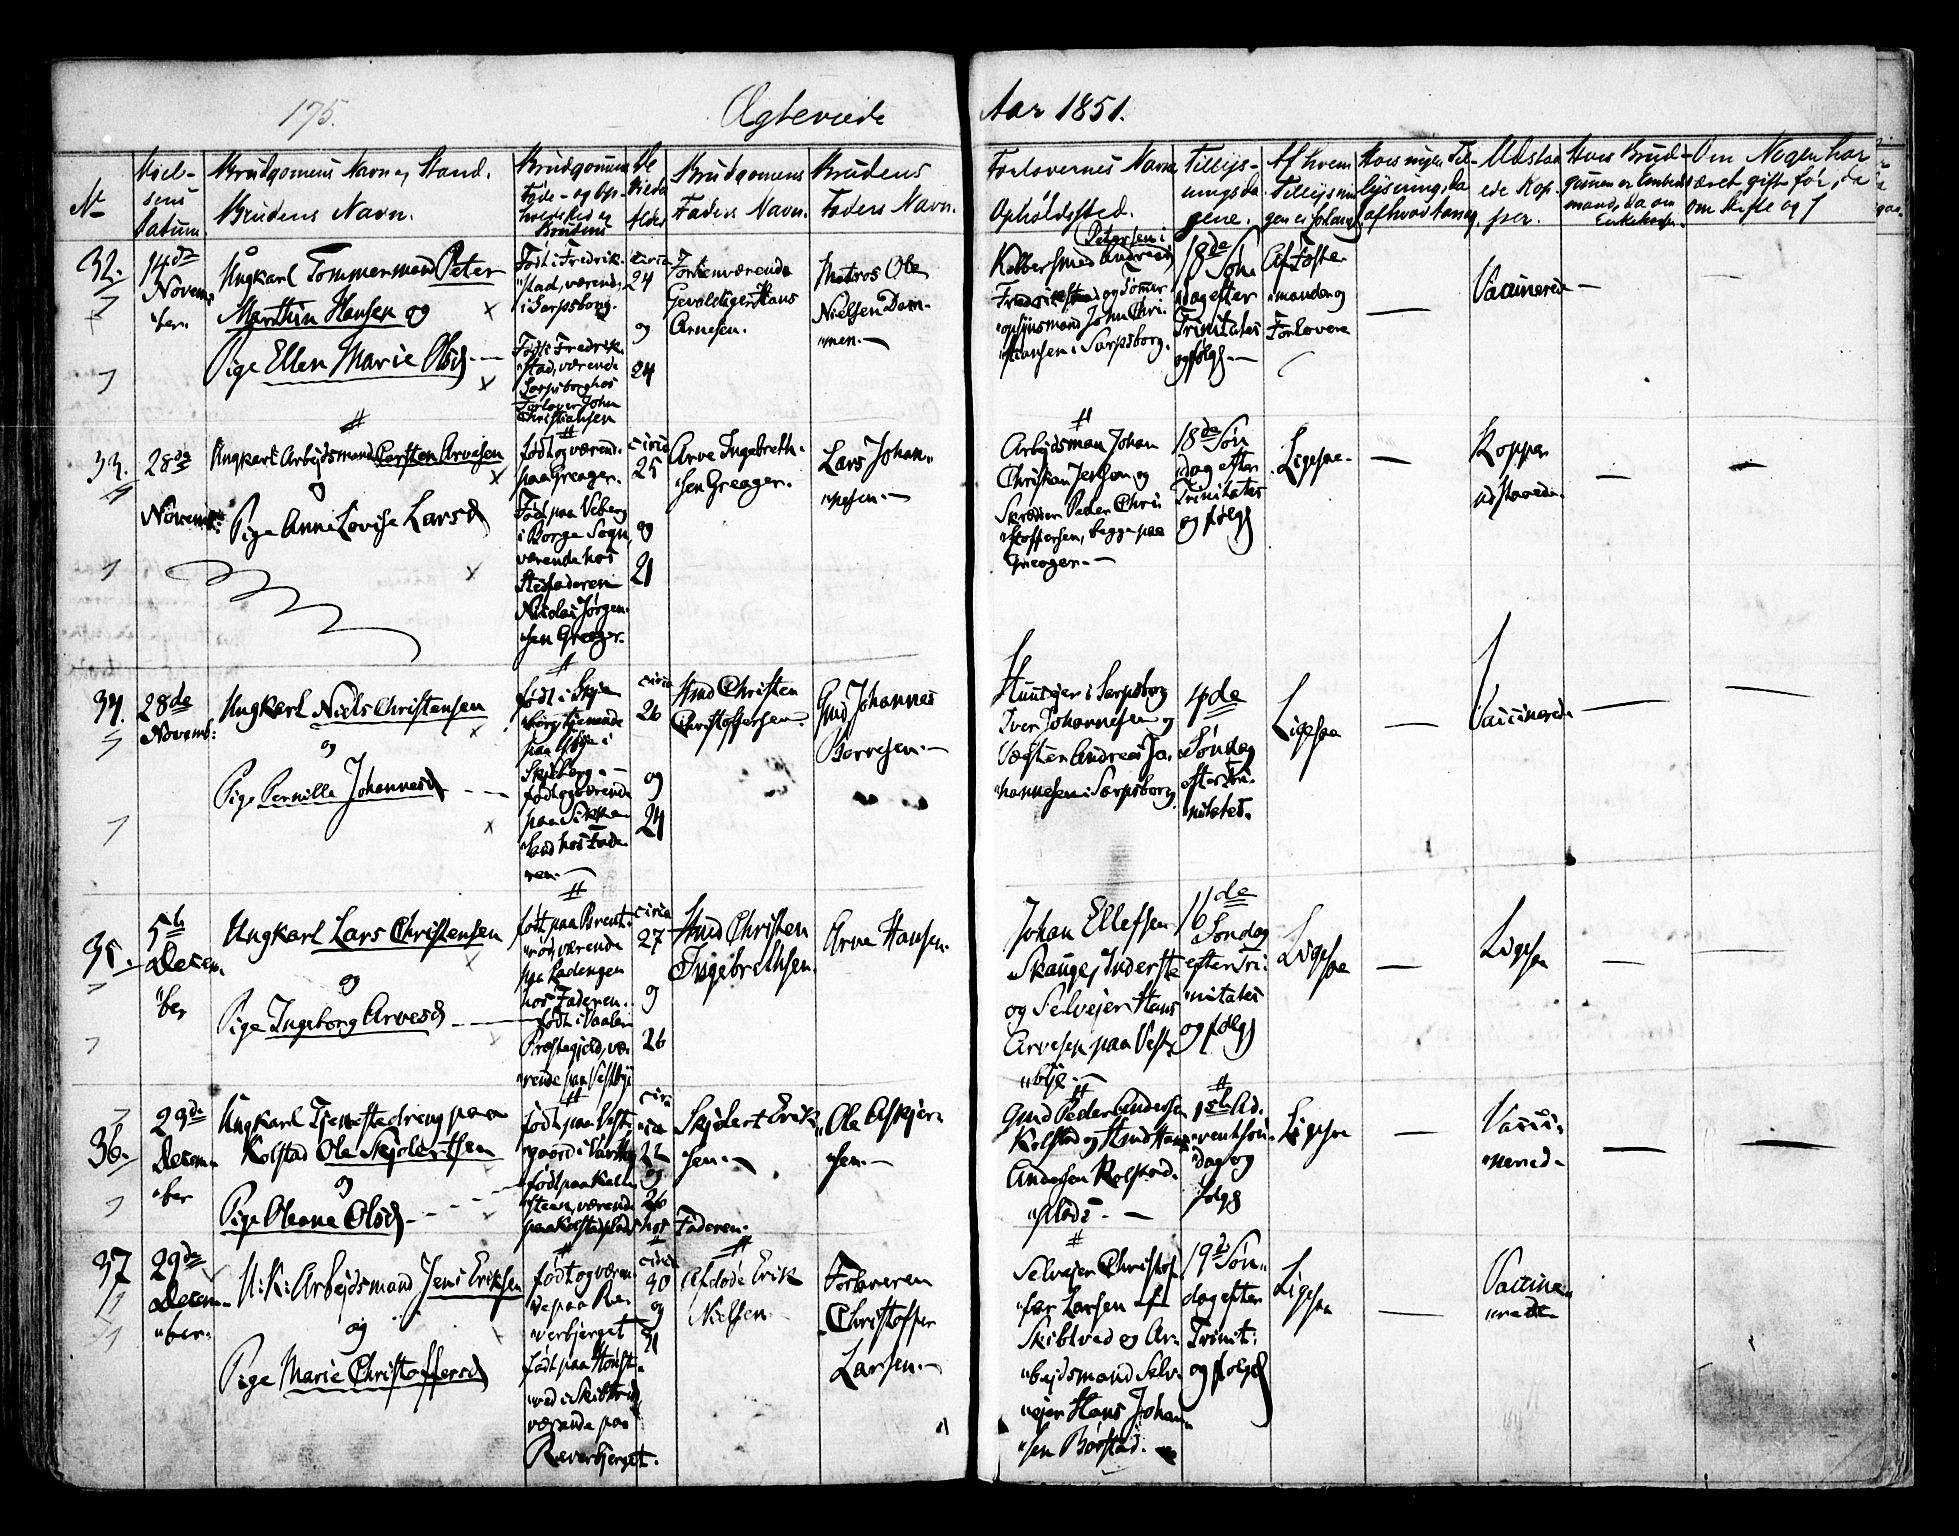 175.
Ægteviede
Aar 1851.
No
Viel-
sens
Datum
Brudgomens Navn og Stand.
Brudens Navn.
Brudgomens
Føde- og Op-
holdssted og
Brudens
De
Viedes
Alder
Brudgomens
Faders Navn.
Brudens
Faders Navn.
Forlovernes Navn
Opholdssted.
Tillys-
ningsda
gene.
Af hvem
Tillysnin
gen er forlangt
Hvis ingen Til-
lysning, da
af hvad Aarsag.
Udstaa
ede Kop-
per.
Hvis Brud-
gommen er Enkemand,
da om
Om Nogen har
været gift før, da
om Skifte og
32.
14de
Novem-
"ber.
Ungkarl Tømmermand Peter
Marthin Hansen og
Pige Ellen Marie Olsd
Født i Fredrik-
"stad, værende
i Sarpsborg.
Født i Fredrik-
"stad, værende
Sarpsborg hos
Forlover John
Christiansen
circa
24
og
24
Forhenværende
Gevaldiger Hans
Arnesen.
Matros Ole
Nielsen Dam-
"men.
Kobbersmed Andreas
Petersen i
Fredrikstad og Tømmer
"mand John Chri-
"stiansen i Sarpsborg.
18de Søn
dag efter
Trinitatis
og følg
Af Føste-
"manden og
Forlovere
—
Vaccinered
—
—
33.
28de
Novemb:
Ungkarl Arbejdsmand Torsten Arvesen
og
Pige Anne Lovise Larsd
Født og værend.
paa Greager.
Født paa Veberg
i Borge Sogn,
værende hos
Stedfaderen
Nicolai Jørgen-
"sen Greager.
circa
25
og
21
Arve Ingebreth-
"sen Greager.
Lars Johan-
"nesen.
Arbejdsman Johan
Christian Jensen, og
Skræder Peder Chri-
"stoffersen, begge paa
Greager.
18de Søn
dag efter
Trinitatis
og følg
Ligesaa
—
Kopper
udstaaede.
—
—
34.
28de
Novemb:
Ungkarl Niels Christensen
og
Pige Pernille Johannesd
født i Skje-
"berg tjenende
paa
Skjeberg.
født og værende
paa
"land hos Fade-
ren.
circa
26
og
24
Hmd Christen
Christoffersen.
Gmd Johannes
Huusejer i Sarpsborg
Iver Johannesen og
Vægter Andreas Jo-
hannesen i Sarpsborg.
4de
Søndag
efter Tri-
nitatis.
Ligesaa
—
Vaccinered
—
—
35.
5te
Decem-
"ber
Ungkarl Lars Christensen
og
Pige Ingeborg Arvesd
født paa Brent-
"rød, værende
paa Ladengen
hos Faderen.
født i Vaaler
Præstegjeld, væ-
rende paa Vestbye
circa
27
og
26
Hmd Christen
Ingebrethsen.
Arve Hansen.
Johan Ellefsen
Skauge, Inderste
og Selvejer Hans
Arvesen paa Vest-
"bye.
16de
Søndag
efter Tri-
"nitatis
og følg
Ligesaa
—
Ligesaa
—
—
36.
29de
Decem-
"ber
Ungkarl Tjenestedreng paa
Kolstad Ole Skjølertsen
og
Pige Oleane Olsd
født paa Vest-
gaard i Varteig
født paa Kal-
steen, værende
paa Kolstadplads hos Faderen.
circa
22
og
26
Skjølert Erik-
"sen.
Ole Asbjørn-
"sen.
Gmd Peder Andersen
Kolstad og Hmd Hans
Andersen Kolstad-
"plads.
1ste Ad-
"ventsøn-
"dag og
følg
Ligesaa
—
Vacci-
"nered.
—
—
37
29de
Decem-
"ber.
U: K: Arbejdsmand Jens Eriksen
og
Pige Marie Christoffersd
født og væren-
"de paa Ræ-
"verbjerget
født paa
"ved i Skibtved,
værende paa
Ræverbjerget.
circa
30
og
31
Afdøde Erik
Nielsen.
Forloveren
Christoffer
Larsen.
Selvejer Christof-
"fer Larsen af
Skibtved og Ar-
"bejdsmand Selv-
"ejer Hans Johan-
"sen Børstad.
19de Søn-
dag efter
Trinit:
og følg
Ligesaa
—
Vaccine-
"rede